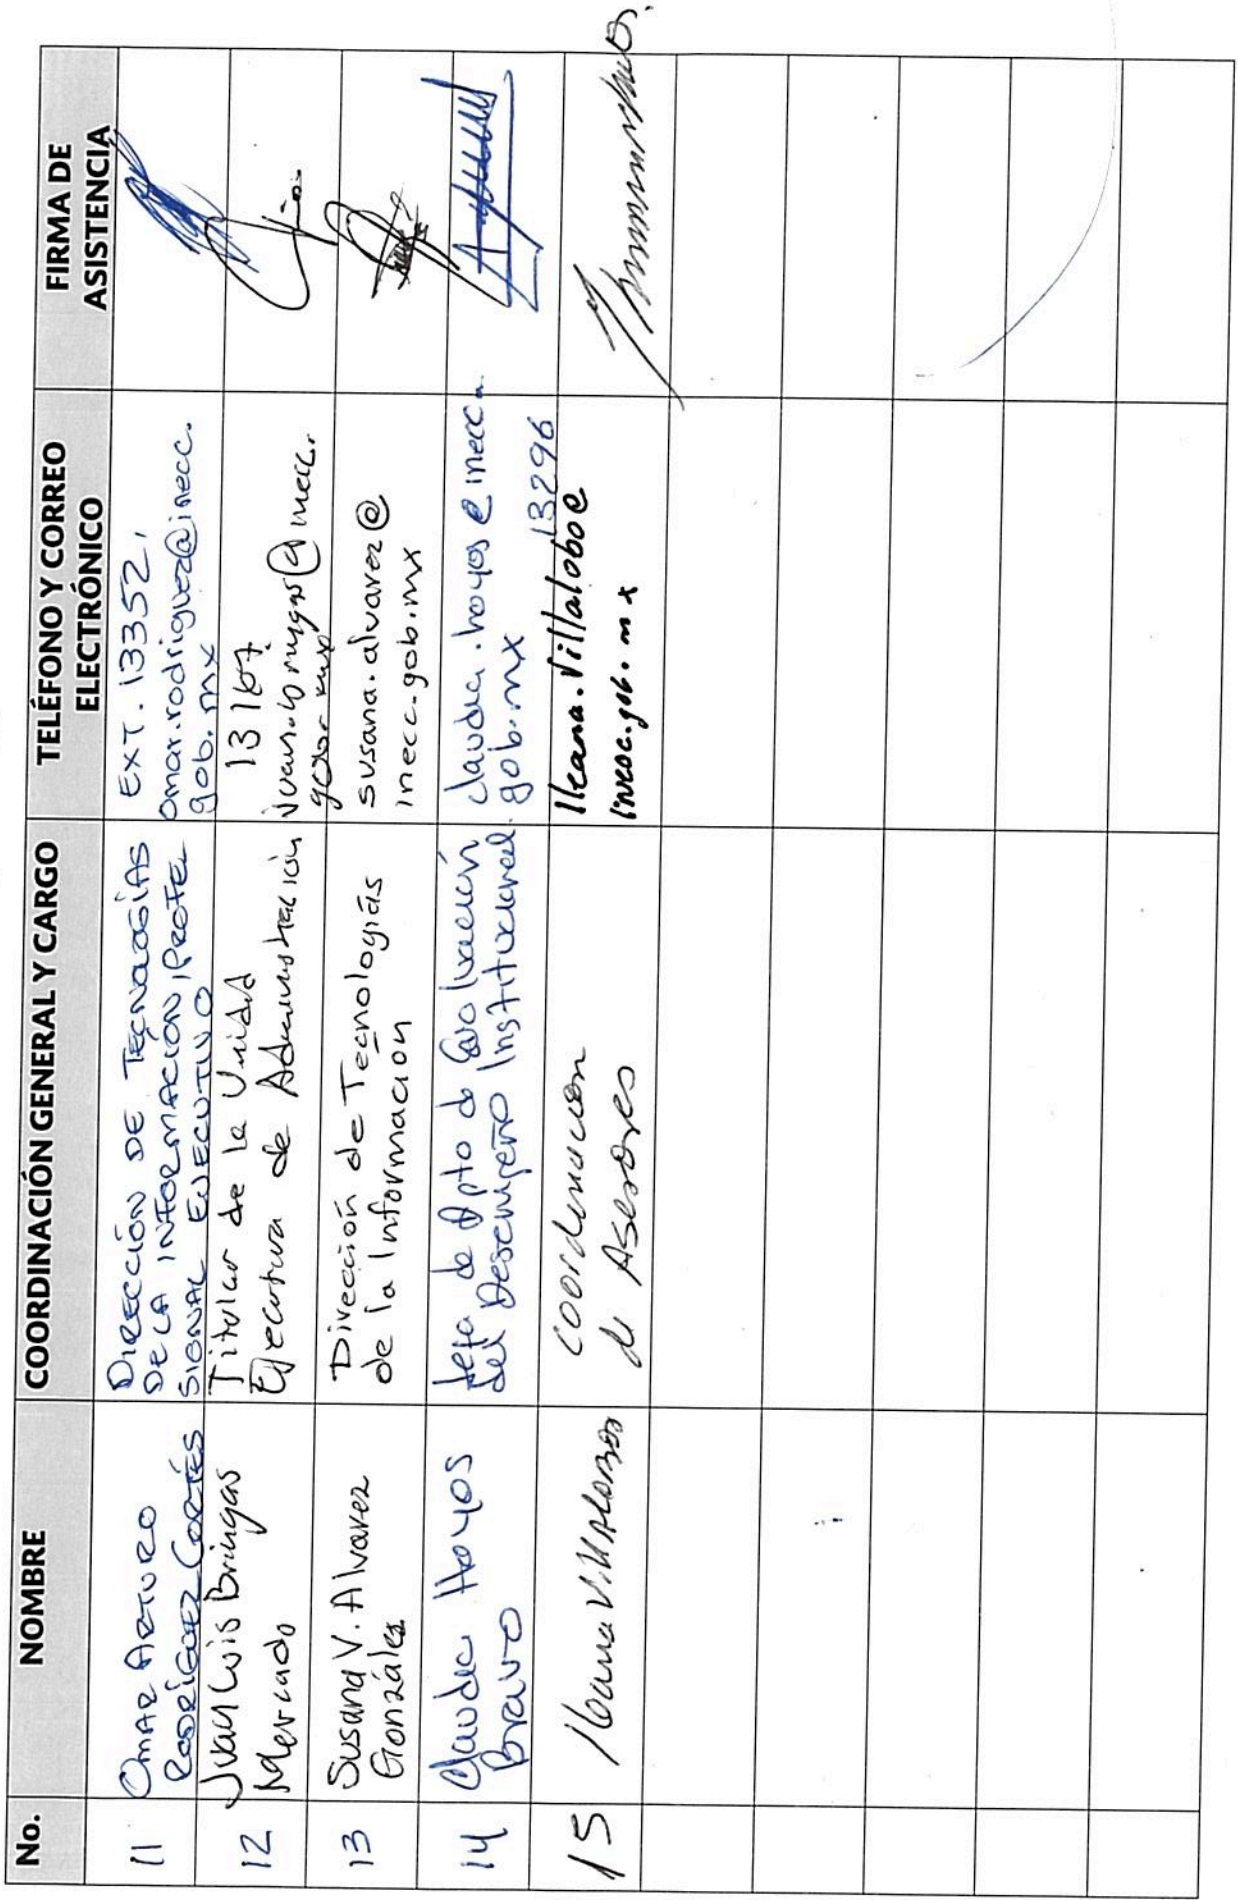 No.
NOMBRE
COORDINACIÓN GENERAL Y CARGO
TELÉFONO Y CORREO
ELECTRÓNICO
FIRMA DE
ASISTENCIA
11
OMAR ARTURO
RODRÍGUEZ CORTÉS
DIRECCIÓN DE TECNOLOGÍAS
DE LA INFORMACIÓN, PROFE
SIONAL EJECUTIVO
EXT. 13352,
omar.rodriguez@inecc.
gob.mx
12
Juan Luis Bringas
Mercado
Titular de la Unidad
Ejecutiva de Administración
13167
@inecc.
gob.mx
13
Susana V. Alvarez
González
Dirección de Tecnologías
de la Informacion
susana.alvarez@
inecc.gob.mx
14
Claudia Hoyos
Bravo
Jefa de Dpto de Evaluación
del Desempeño Institucional.
claudia.hoyos@inecc.
gob.mx 13296
15
Ileana Villalobos
Coordinacion
de Asesores
Ileana.Villalobo@
inecc.gob.mx